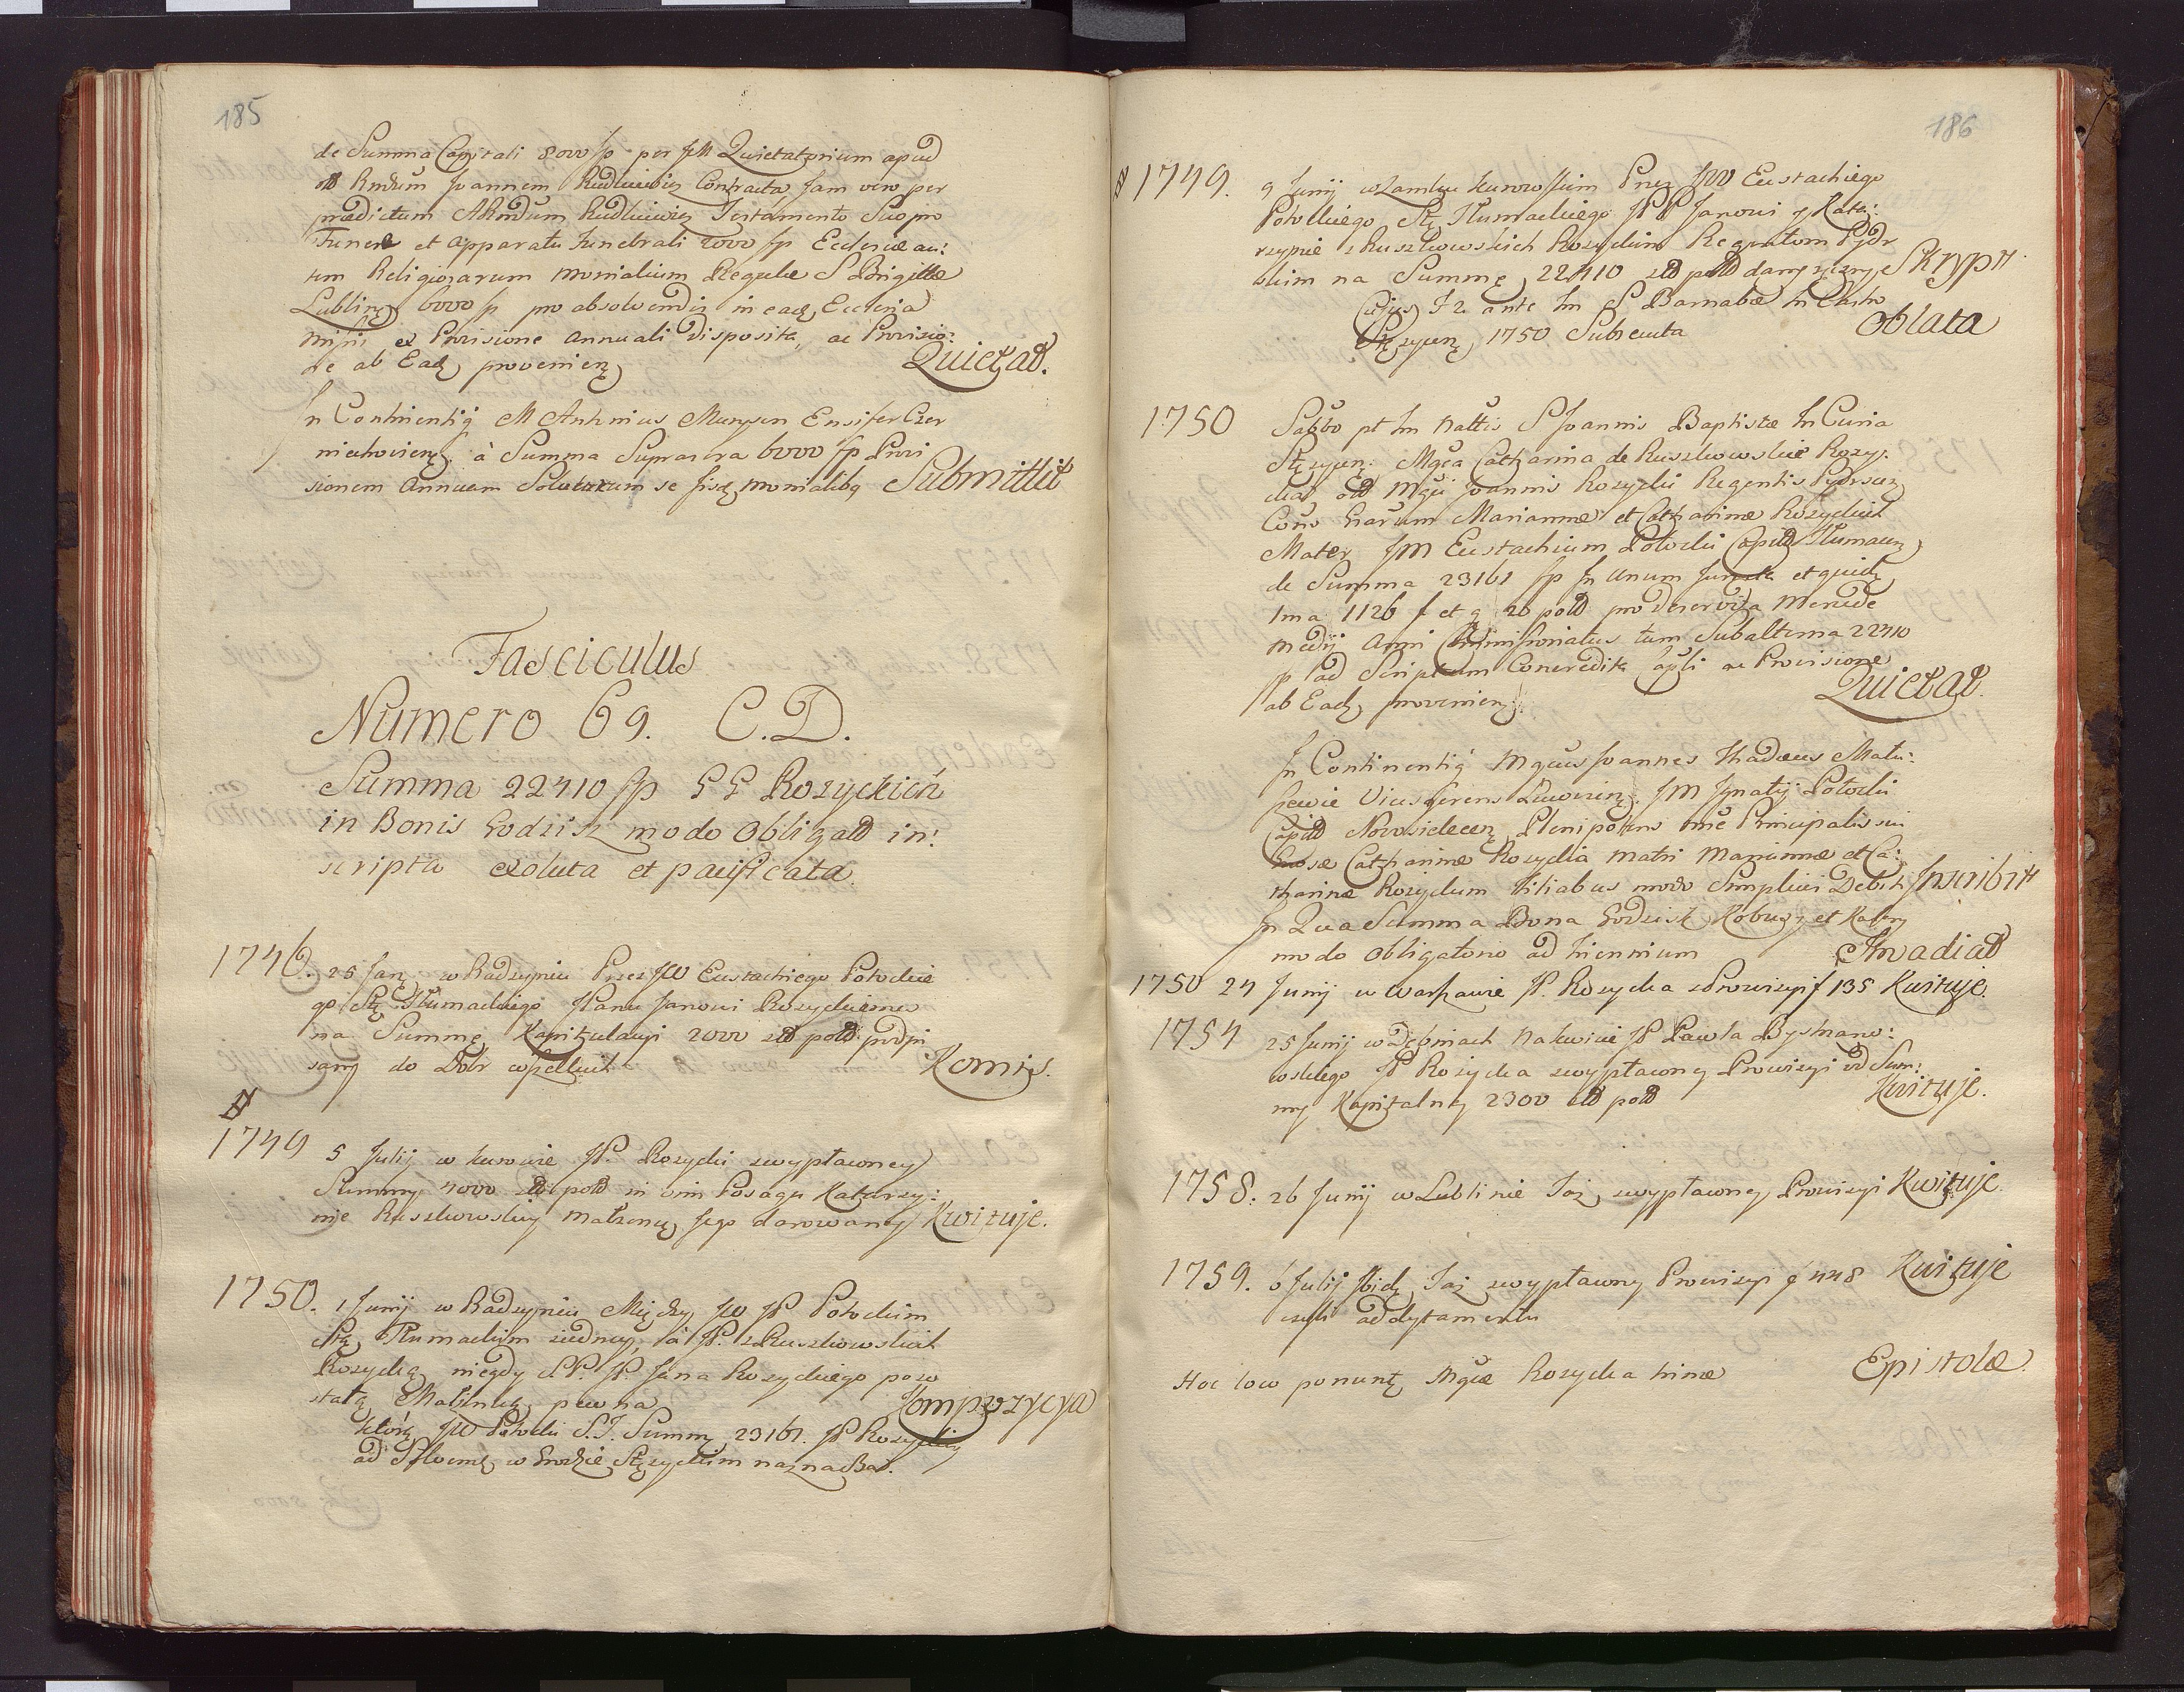 185
de Summa Capitali 8000 fp per JM Quietatorium apud
Rndum Joannem Rudlicwicz Contracta, Jam vero per
praedictum ARndum Rudlicwicz Testamento Suo pro
Funere et apparatu Funebrali 2000 fp Ecclesiae au:
tem Religiosarum Monialium Regulae S Brigittae
Lublinen 6000 fp pro absolvendis in eadę Ecclesia
missis ex Provisione annuali disposita, ac Provisio:
ne ab Eadę provenienę Quietat.
In Continentię M Antonius Ensifer Czer
niechoviens. à Summa Suprascra 6000 fp Provi
sionem Annuam Soluturum se fisdę monialibę Submittit
Fasciculus
Numero 69. C.D.
Summa 22410 fp GG Rozyckich
in Bonis Godzisz modo Obligatt in:
scripta exoluta et pacificata.
1746. 25 Jan. w Radzyniu Przez JW Eustachiego Potockie
go Stę Tłumackiego JPanu Janowi Rozyckiemu
na Summę Kapitulacyi 2000 zł pold podpi
sany do Dobr Komis.
#
1749 5 Julij w Kurowie JP. Rozycki zwypłaconey
Summy 4000 zł pold in vim Posagu Katarzy:
nie Ruszkowskiy Małzonce Jego darowany Kwituje.
1750. 1 Junij w Radzyniu Między JW JP Potockim
Stą Tłumackim zjedney, à JP. z Ruszkowskich
Rozycką niegdy S.P. JP. Jana Rozyckiego pozo
stałą Małzonką pewna Kompozycya
którą JW Potocki S.T. Summę 23161. JP Rozyckiy
ad w Grodzie Stęzyckim naznaczał.
186
# 1749. 9 Junij w Zamku Kurowskim Przez JW Eustachiego
Potockiego Stę Tłumackiego JPP Janowi y Kata:
rzynie z Ruszkowskich Rozyckim Regentom
skim na Summę 22410 zł pold dany ręczny Skrypt.
Cujus F 2 ante fm S Barnabae in Castro
Stęzycen 1750 Subsecuta Oblata
1750 Sabbo pt fm nattis S Joannis Baptistae In Curia
Stęzycen: Mgca Catharina de Ruszkowskie Rozy:
cka old Mgci Joannis Rozycki Regentis
Conso Gnarum Mariannae et Catharinae Rozyckich
Mater JM Eustachium Potocki Capitd Tłumacen
de Summa 23161 fp in unum juncta et quidę
1ma 1126 f et g 20 pold pro deservita Mercede
medij Anni Commissoriatus tum Subaltima 22410
fp ad Scriptum Concredita Capli ac Provisione
ab Eadę provenienę. Quietat.
In Continentię Mgcus Joannes Thadaeus Matu:
szewic Vicesgerens JM Ignatij Potocki
Capitd Novosielecen Plenipotens nne Principalis sui
Gnosae Catharinae Rozycka Matri Mariannae et Ca:
tharinae Rozyckim filiabus modo Simplicis Debiti Inscribitt
In Qua Summa Bona Godzisz Kobusz et Kalen
modo Obligatorio ad triennium Invadiat
1750 24 Junij w Warszawie JP. Rozycka zProwizyi f 135 Kwituje.
1754 25 Junij w Dębinach Nakwicie JP Pawła Bystrano:
wskiego JP Rozycka zwypłacony Prowizyi od Sum:
my Kapitalney 2300 zł pold Kwituje.
1758. 26 Junij w Lublinie Taż zwypłaconey Prowizyi Kwituje.
1759. 6 Julij Ibidę Taż zwypłacony Prowizyi f 448 Kwituje
czyli addytamentu
Hoc loco ponuntę Mgcae Rozycka binae Epistolae.